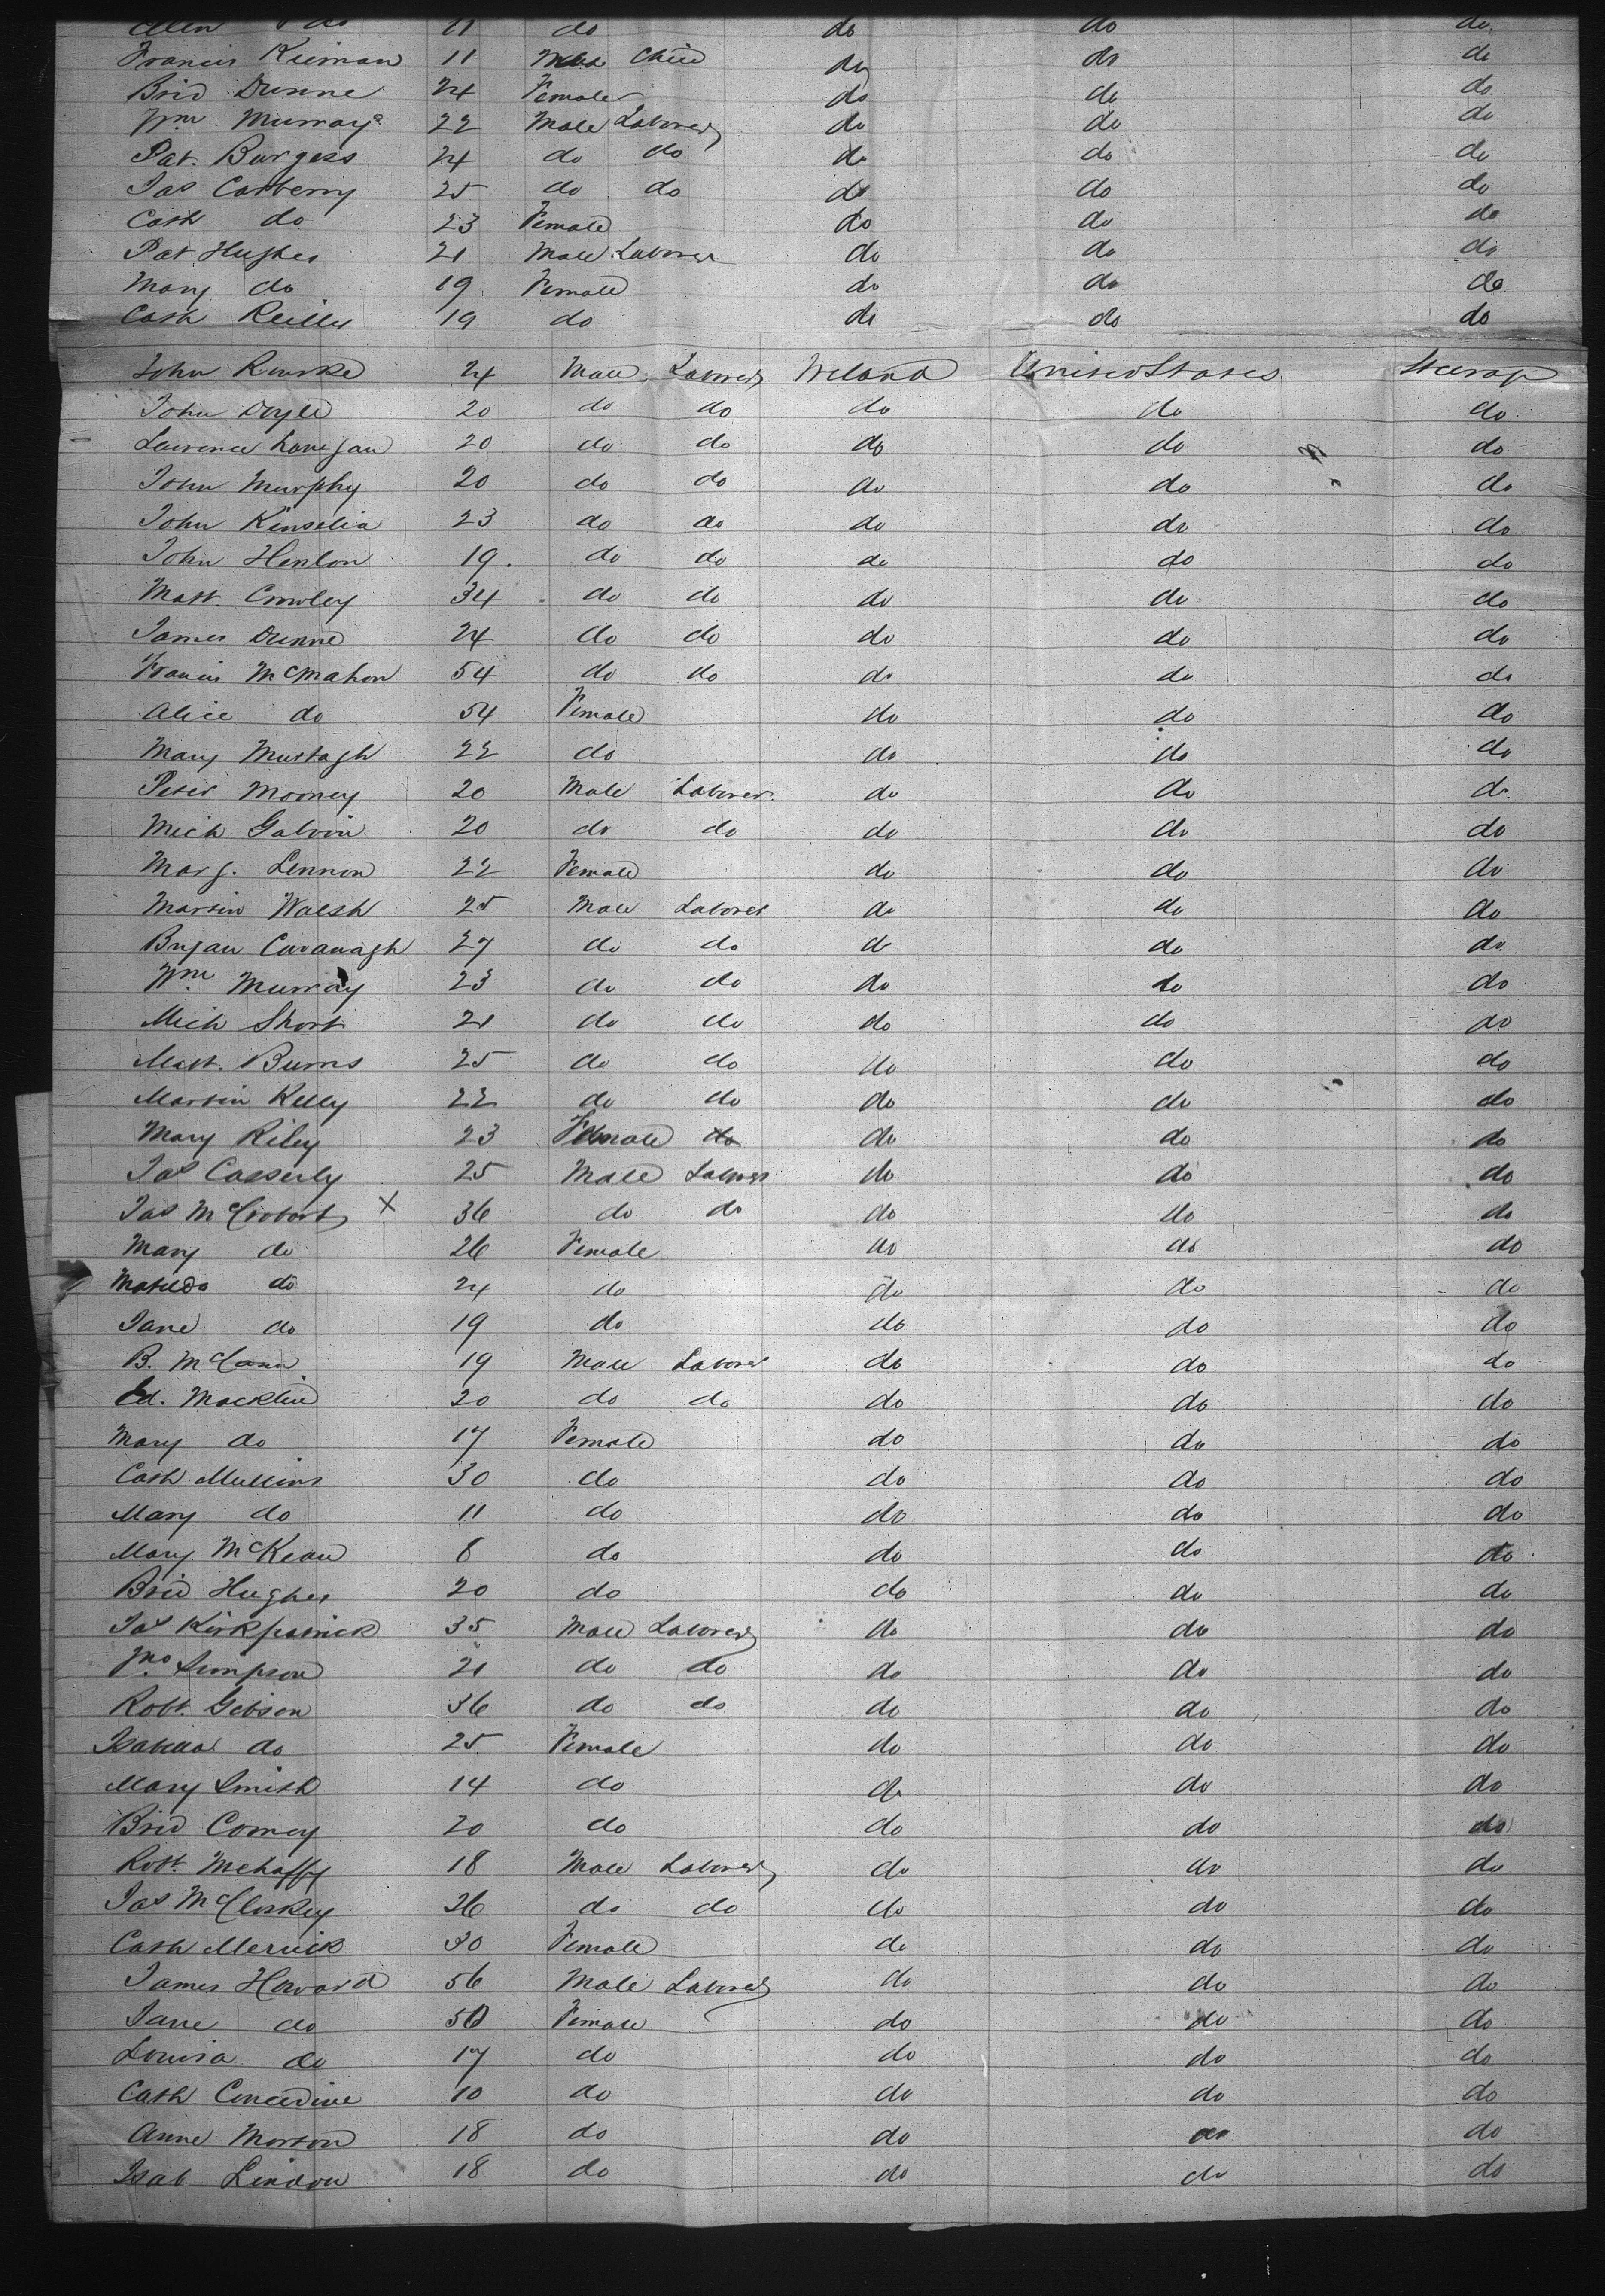 Ellen do 11 do do do do
Francis Kiernan 11 Male Child do do do
Brid Dunne 24 Female do do do
Wm Murray 22 Male Laborer do do do
Pat. Burgess 24 do do do do do
Jas Carberry 25 do do do do do
Cath do 23 Female do do do
Pat Hughes 21 Male Laborer do do do
Mary do 19 Female do do do
Cath Reilly 19 do do do do
John Rourke 24 Male Laborer Ireland United States Steerage
John Doyle 20 do do do do do
Lawrence Lanegan 20 do do do do do
John Murphy 20 do do do do do
John Kinselia 23 do do do do do
John Henlon 19. do do do do do
Matt. Crowley 34 do do do do do
James Dunne 24 do do do do do
Francis McMahon 54 do do do do do
Alice do 54 Female do do do
Mary Murtagh 22 do do do do
Peter Mooney 20 Male Laborer do do do
Mich Galvin 20 do do do do do
Marg. Lennon 22 Female do do do
Martin Walsh 25 Male Laborer do do do
Bryan Cavanagh 27 do do do do do
Wm Murray 23 do do do do do
Mich Short 21 do do do do do
Matt. Burns 25 do do do do do
Martin Kelly 22 do do do do do
Mary Riley 23 Female do do do do
Jas Casserly 25 Male Laborer do do do
Jas McCrobort X 36 do do do do do
Mary do 26 Female do do do
Matilda do 24 do do do do
Jane do 19 do do do do
B. McCann 19 Male Laborer do do do
Ed. Macklin 20 do do do do do
Mary do 17 Female do do do
Cath Mullins 30 do do do do
Mary do 11 do do do do
Mary McKean 8 do do do do
Brid Hughes 20 do do do do
Jas Kirkpatrick 35 Male Laborer do do do
Jno Simpson 21 do do do do do
Robt. Gibson 36 do do do do do
Isabella do 25 Female do do do
Mary Smith 14 do do do do
Brid Comey 20 do do do do
Robt. Mehaffy 18 Male Laborer do do do
Jas McCloskey 26 do do do do do
Cath Merrick 30 Female do do do
James Howard 56 Male Laborer do do do
Jane do 50 Female do do do
Louisa do 17 do do do do
Cath Concedine 10 do do do do
Anne Morton 18 do do do do
Isab Lindon 18 do do do do